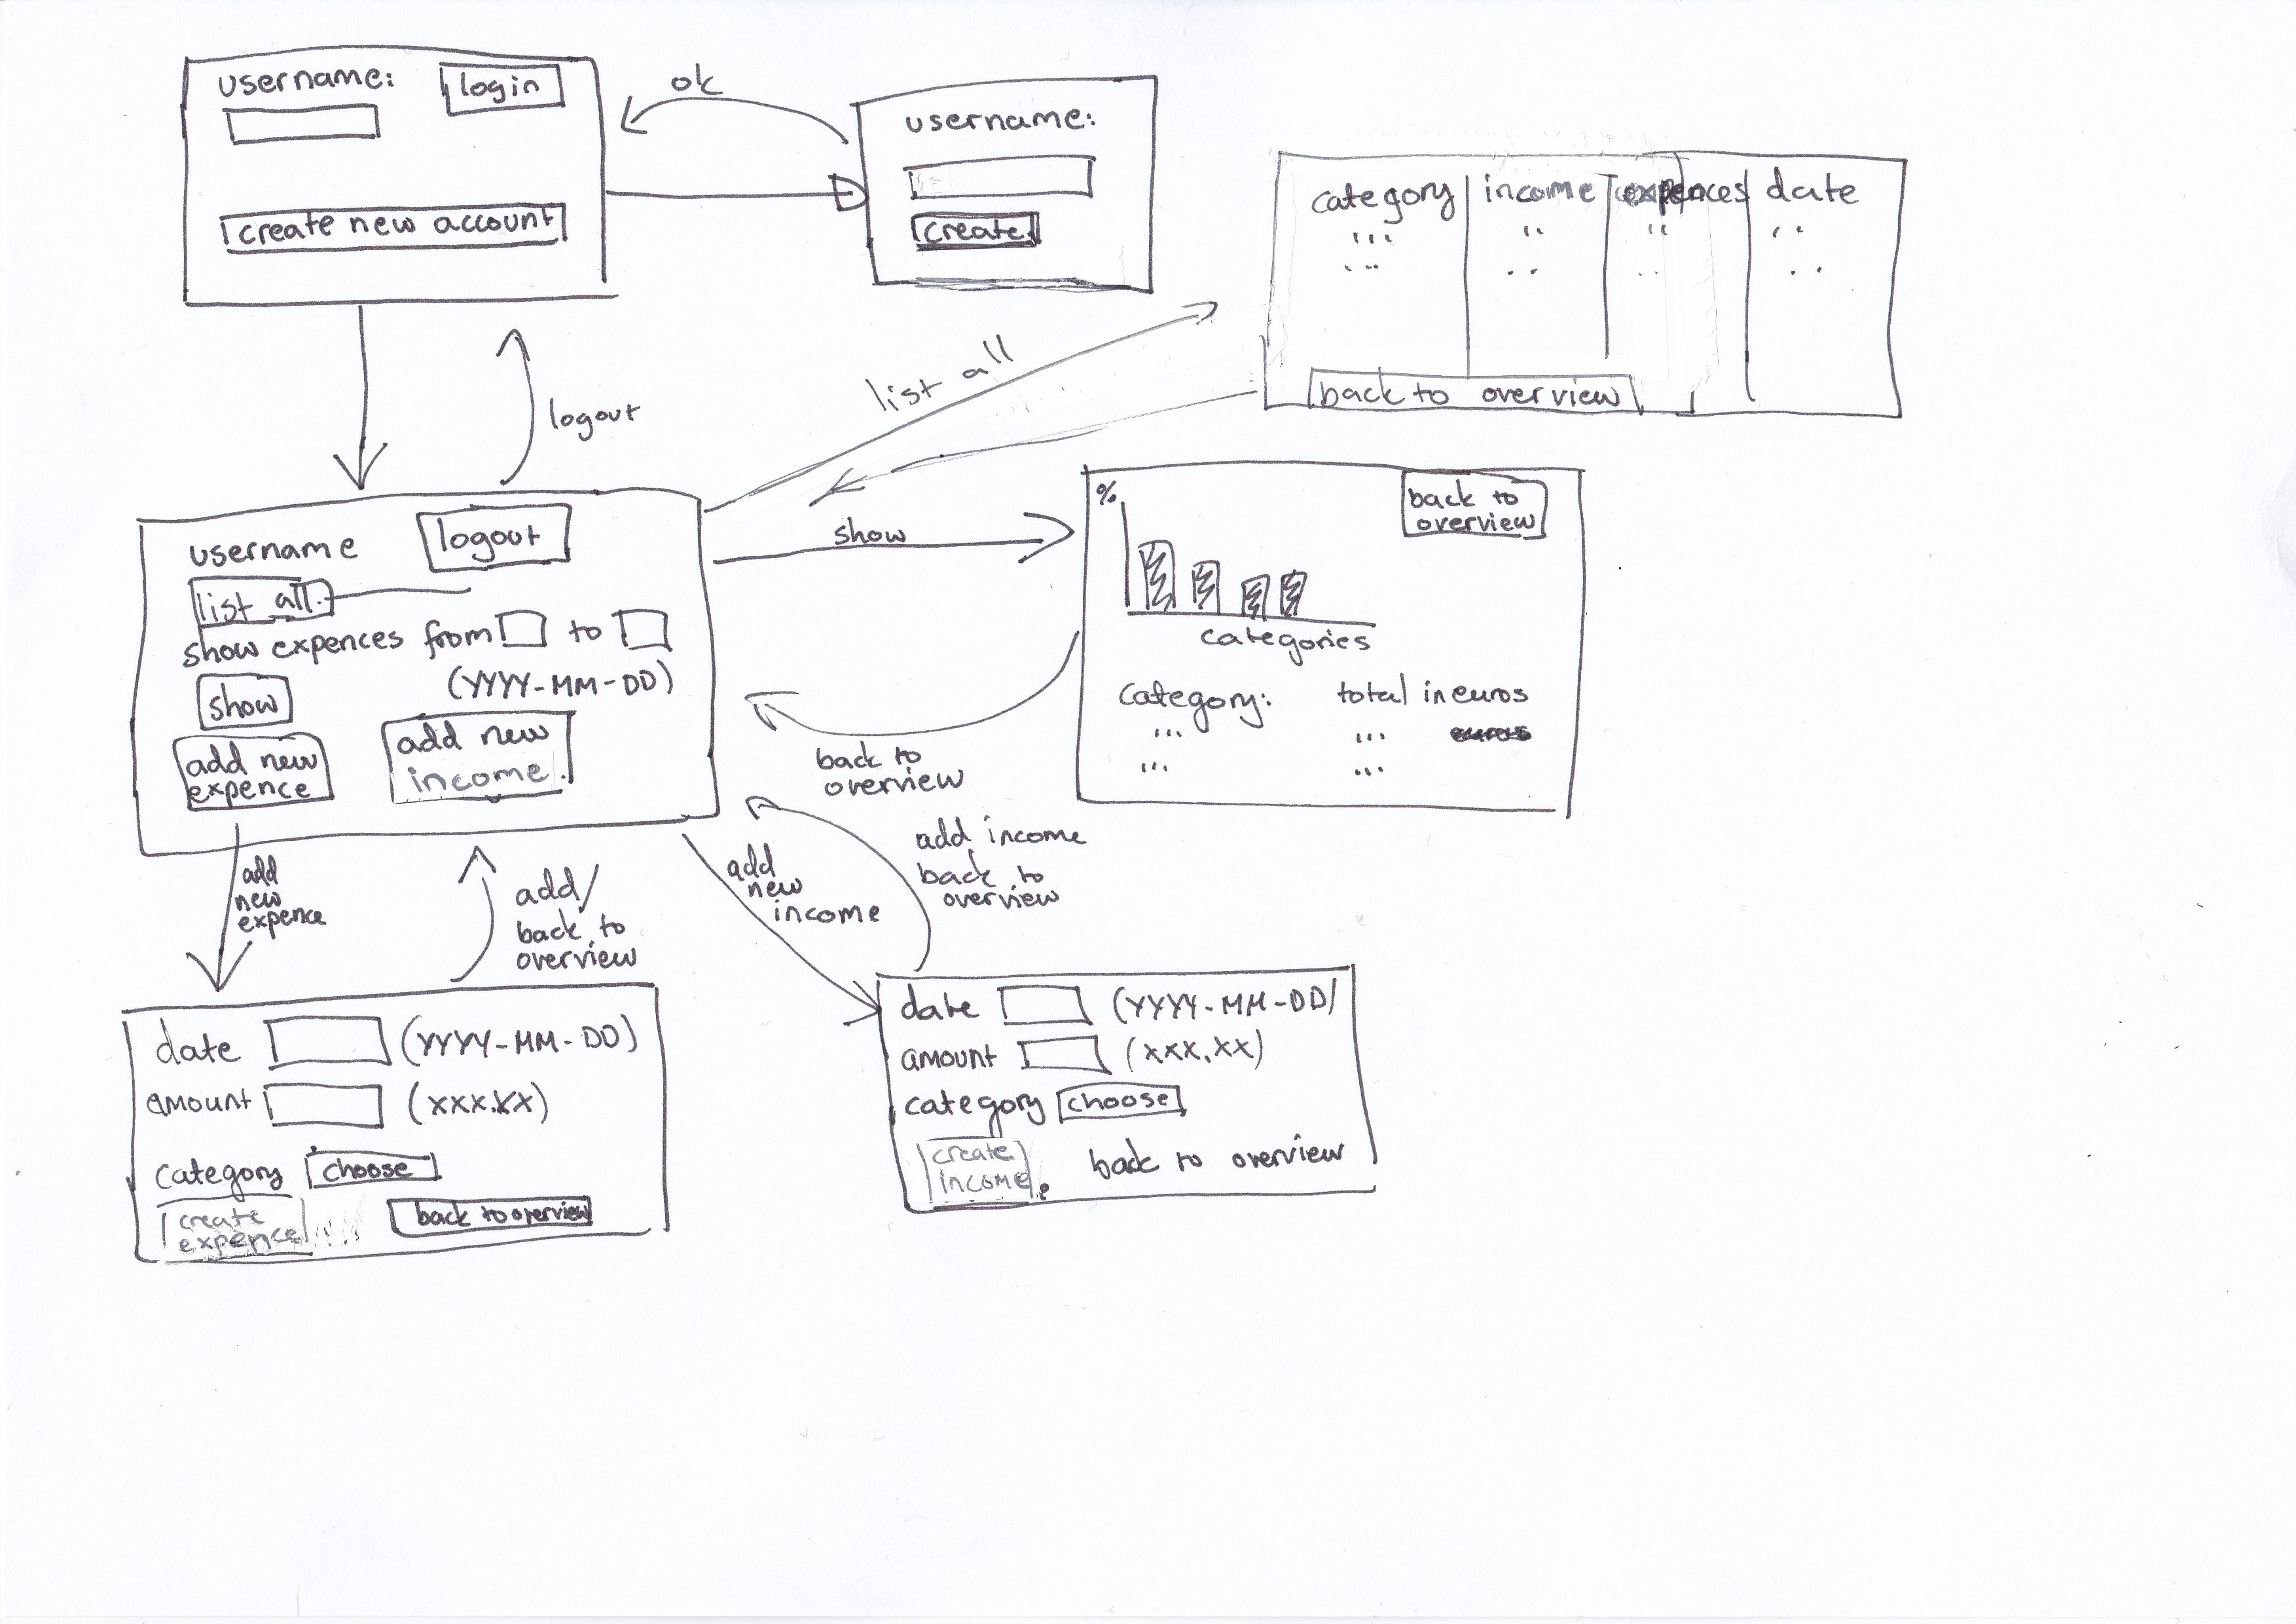 username:
login
create new account
ok
username:
create
category
income
expences
date
back to overview
list all
logout
username
logout
list all
show expences from to
(YYYY-MM-DD)
show
add new
expence
add new
income
show
%
back to
overview
categories
category:
total in euros
...
...
...
...
back to
overview
add
new
expence
add/
back to
overview
add
new
income
add income
back to
overview
date (YYYY-MM-DD)
amount (xxx.xx)
category choose
create
expence
back to overview
date (YYYY-MM-DD/
amount (xxx.xx)
category choose
create
income
back to overview